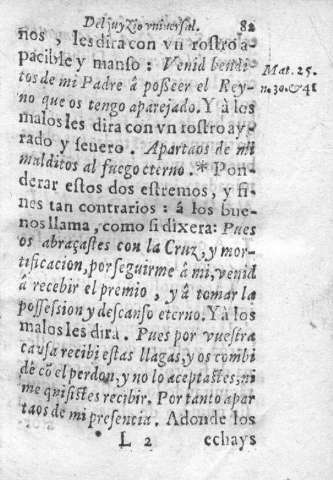 Del juyzio vniuersal. 82
nos, les dira con vn rostro a-
pacible y manso: Venid bendi-
tos de mi Padre â posseer el Rey-
no que os tengo aparejado. Y à los
malos les dira con vn rostro ay-
rado y seuero. Apartaos de mi
malditos al fuego eterno.* Pon-
derar estos dos estremos, y fi-
nes tan contrarios: á los bue-
nos llama, como si dixera: Pues
os abraçastes con la Cruz, y mor-
tificacion, por seguirme â mi, venid
â recebir el premio, y â tomar la
possession y descanso eterno. Y à los
malos les dira. Pues por vuestra
causa recibi estas llagas, y os combi
de cõ el perdon, y no lo aceptastes, ni
me quisistes recibir. Por tanto apar
taos de mi presencia. Adonde los
* L 2 echays
Mat. 25.
n. 30. & 41